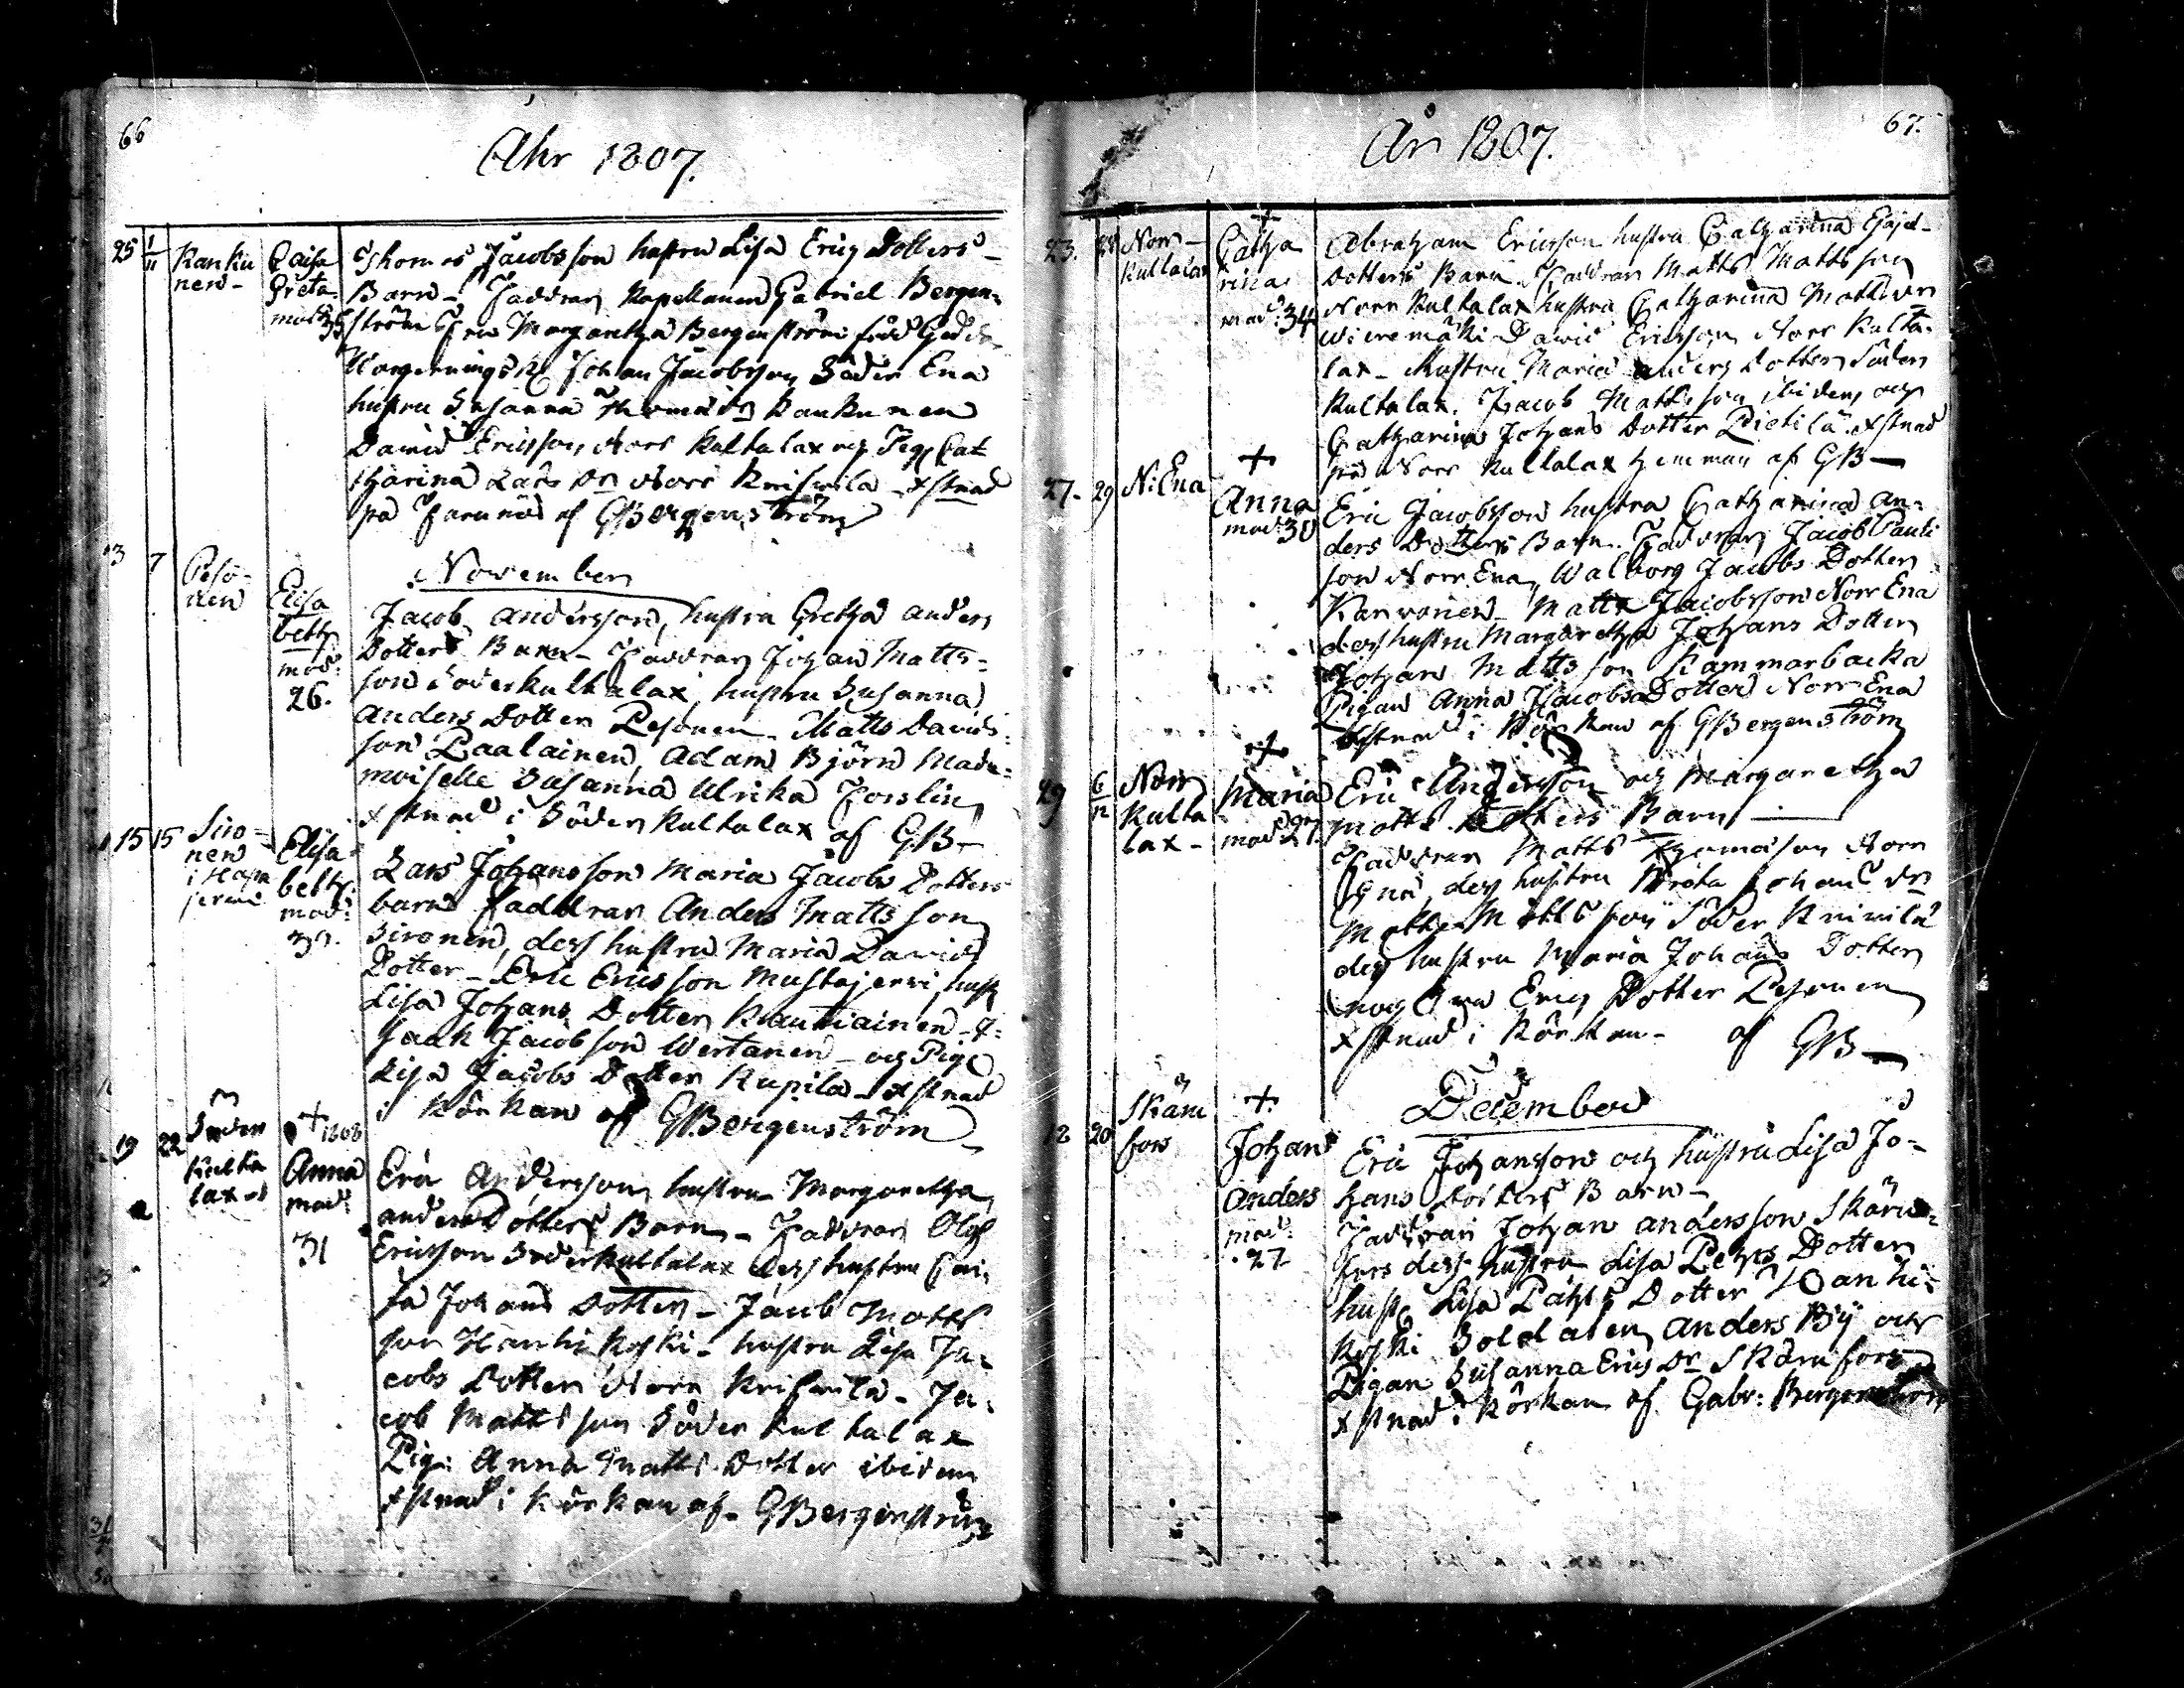 66
Ahr 1807.
25 1/11 Kanku Caisa Thomas Jacobsson hustru Lisa Erics Dotters
nen Greta Barn Faddrar Kapellanen Gabriel Bergen
mod: 35 ström Fru Margaretha Bergenström född
Johan Jacobsson Söder Ena
hustru Susanna Thomae Dr Kankunen
David Ericsson Norr Kultalax och Pig Cat
harina Lars Dr Norr xstnad
på af GBergenström
November
3 7 Peso
nen Elisa
beth
mod:
26.
Jacob Andersson, hustru Gretha Anders
Dotters Barn Faddrar Johan Matts
son Söderkultalax, hustru Susanna
Anders Dotter Pesonen Matts Davids
son Paalainen, Adam Björn Made
moiselle Susanna Ulrika Forslin
xstnad i Söder Kultalax af GB
15 15 Siro
nen Elisa
beth
mod:
Lars Johansson Maria Jacobs Dotters
barn Faddrar Anders Mattsson
Sironen, dess hustru Maria Davids
Dotter Eric Ericsson Mustajervi, hust
Lisa Johans Dotter Kautiainen I
saak Jacobsson Wertanen och Pig
Lisa Jacobs Dotter Kupila xstnad
i Körkan af GBergenström
19 22 Söder
Kulta
lax + 1808
Anna
mod:
31
Eric Andersson hustru Margaretha
Anders Dotters Barn Faddrar Olof
Ericsson Söderkultalax dess hustru Cai
sa Johans Dotter Jacob Matts
son Hanhikoski hustru Lisa Ja
cobs Dotter Norr Jac
ob Mattsson Söder Kultalax
Pig: Anna Matts Dotter ibidem
xstnad i Körkan af GBergenström
67.
År 1807.
23. 28 Norr
Kultalax +
Catha
rina
mod: 34
Abraham Ericsson hustru Catharina
Dotters Barn Faddrar Matts Mattsson
Norr Kultalax hustru Catharina Matts Dr
Wieremäki David Ericsson Norr Kulta
lax Hustru Maria Anders Dotter Söder
Kultalax. Jacob Mattsson ibidem och
Catharina Johans Dotter Pietilä xstnad
på Norr Kultalax hemman af GB
27. 29 N: Ena +
Anna
mod: 30
Eric Jacobsson hustru Catharina An
ders Dotters Barn. Faddrar Jacob Pauli
son Norr Ena, Walborg Jacobs Dotter
Karvonen Matts Jacobsson Norr Ena
dess hustru Margaretha Johans Dotter
Johan Mattsson Kammarbacka
Pigan Anna Jacobs Dotter Norr Ena
xstnad i Körkan af GBergenström
29 6/12 Norr
Kulta
lax +
Maria
mod: 27.
Eric Andersson och Margaretha
Matts Dotters Barn
Faddrar Matts Thomasson Norr
Ena, dess hustru Greta Johans Dr
Matts Mattsson Söder
dess hustru Maria Johans Dotter
Erics Dotter Pesonen
xstnad i Körkan af GB
December
12 20 Skäm
fors +
Johan
Anders
mod:
27
Eric Johansson och hustru Lisa Jo
hans Dotters Barn
Faddrar Johan Andersson Skäm
fors dess hustru Lisa Pehrs Dotter
hust Lisa Dotter Hanhi
koski Soldaten Anders By och
Pigan Susanna Erics Dr Skämfors
xstnad i Körkan af Gabr: Bergenström